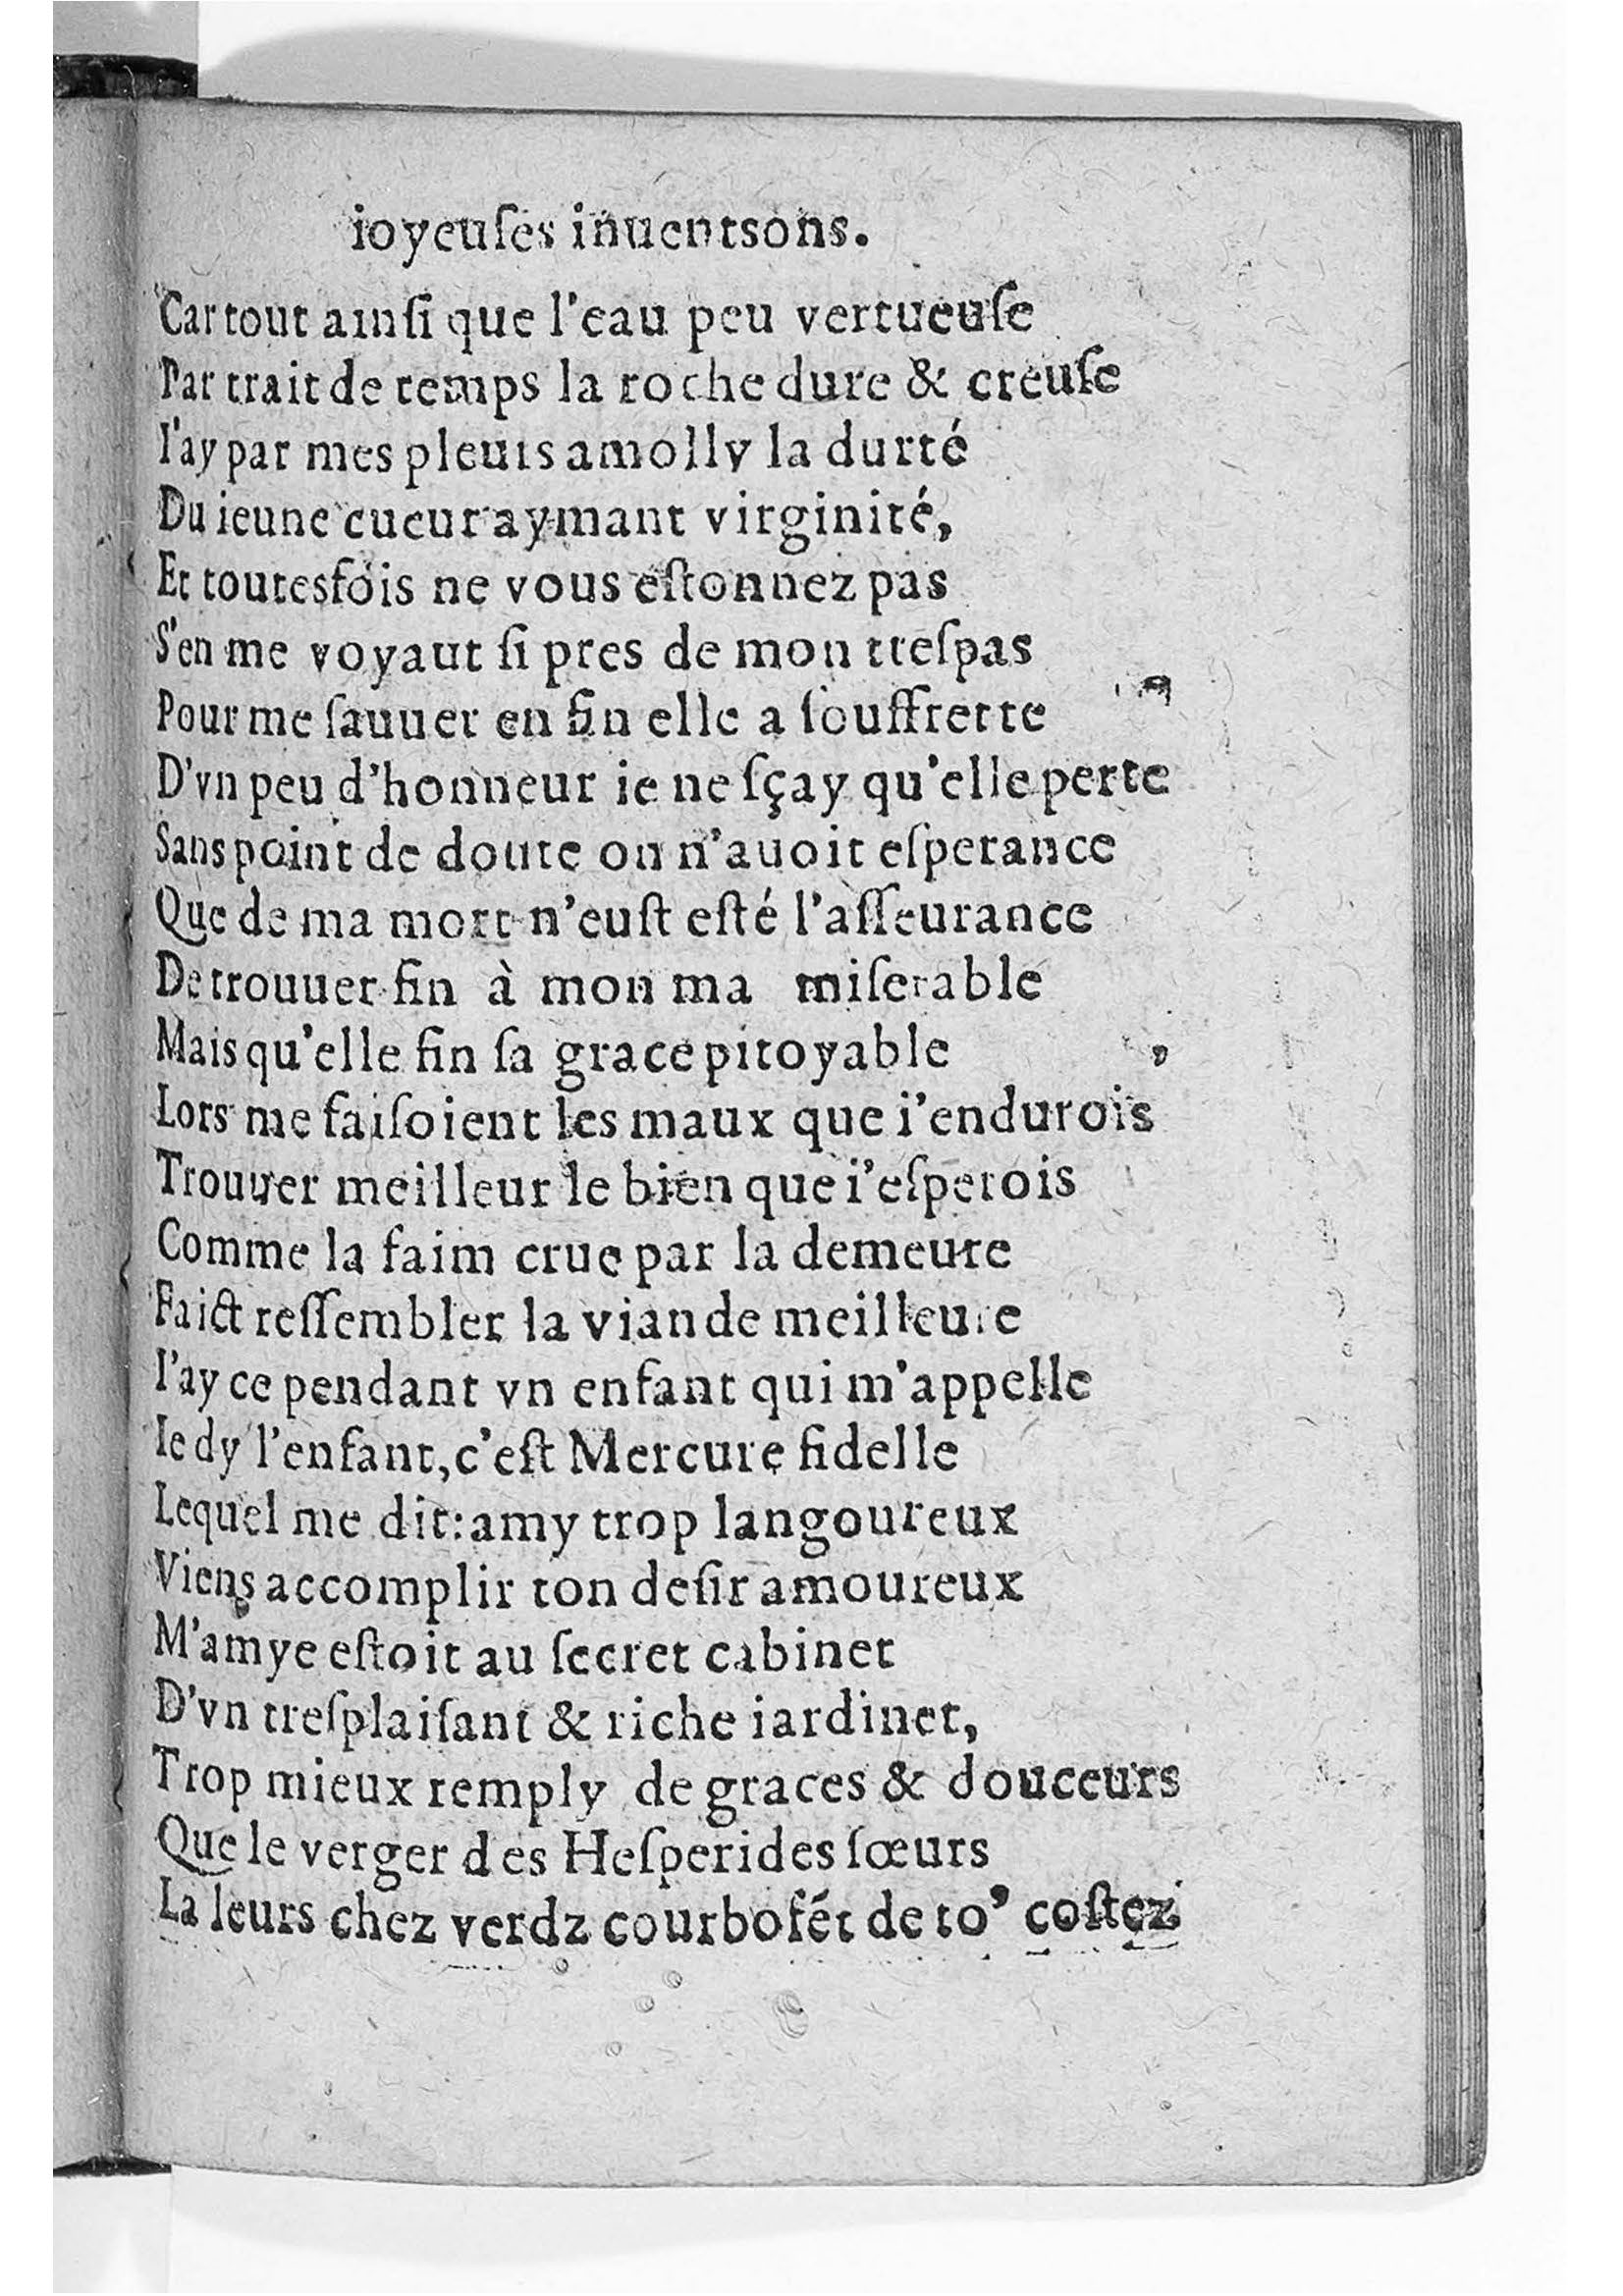 ioyeuſes inuentsons.
Car tout ainſi que l'eau peu vertueuſe
Par trait de temps la roche dure & creuſe
I'ay par mes pleurs amolly la durté
Du ieune cueur aymant virginité,
Et toutesfois ne vous eſtonnez pas
S'en me voyaut ſi pres de mon treſpas
Pour me ſauuer en fin elle a ſouffrette
D'vn peu d'honneur ie ne ſçay qu'elle perte
Sans point de doute on n'auoit eſperance
Que de ma mort n'euſt eſté l'aſſeurance
De trouuer fin à mon ma miſerable
Mais qu'elle fin ſa grace pitoyable
Lors me faiſoient les maux que i'endurois
Trouuer meilleur le bien que i'eſperois
Comme la faim crue par la demeure
Faict reſſembler la viande meilleure
I'ay ce pendant vn enfant qui m'appelle
Ie dy l'enfant, c'eſt Mercure fidelle
Lequel me dit: amy trop langoureux
Viens accomplir ton deſir amoureux
M'amye eſtoit au ſecret cabinet
D'vn treſplaiſant & riche iardinet,
Trop mieux remply de graces & douceurs
Que le verger des Heſperides ſœurs
La leurs chez verdz courboſét de to' coſtez